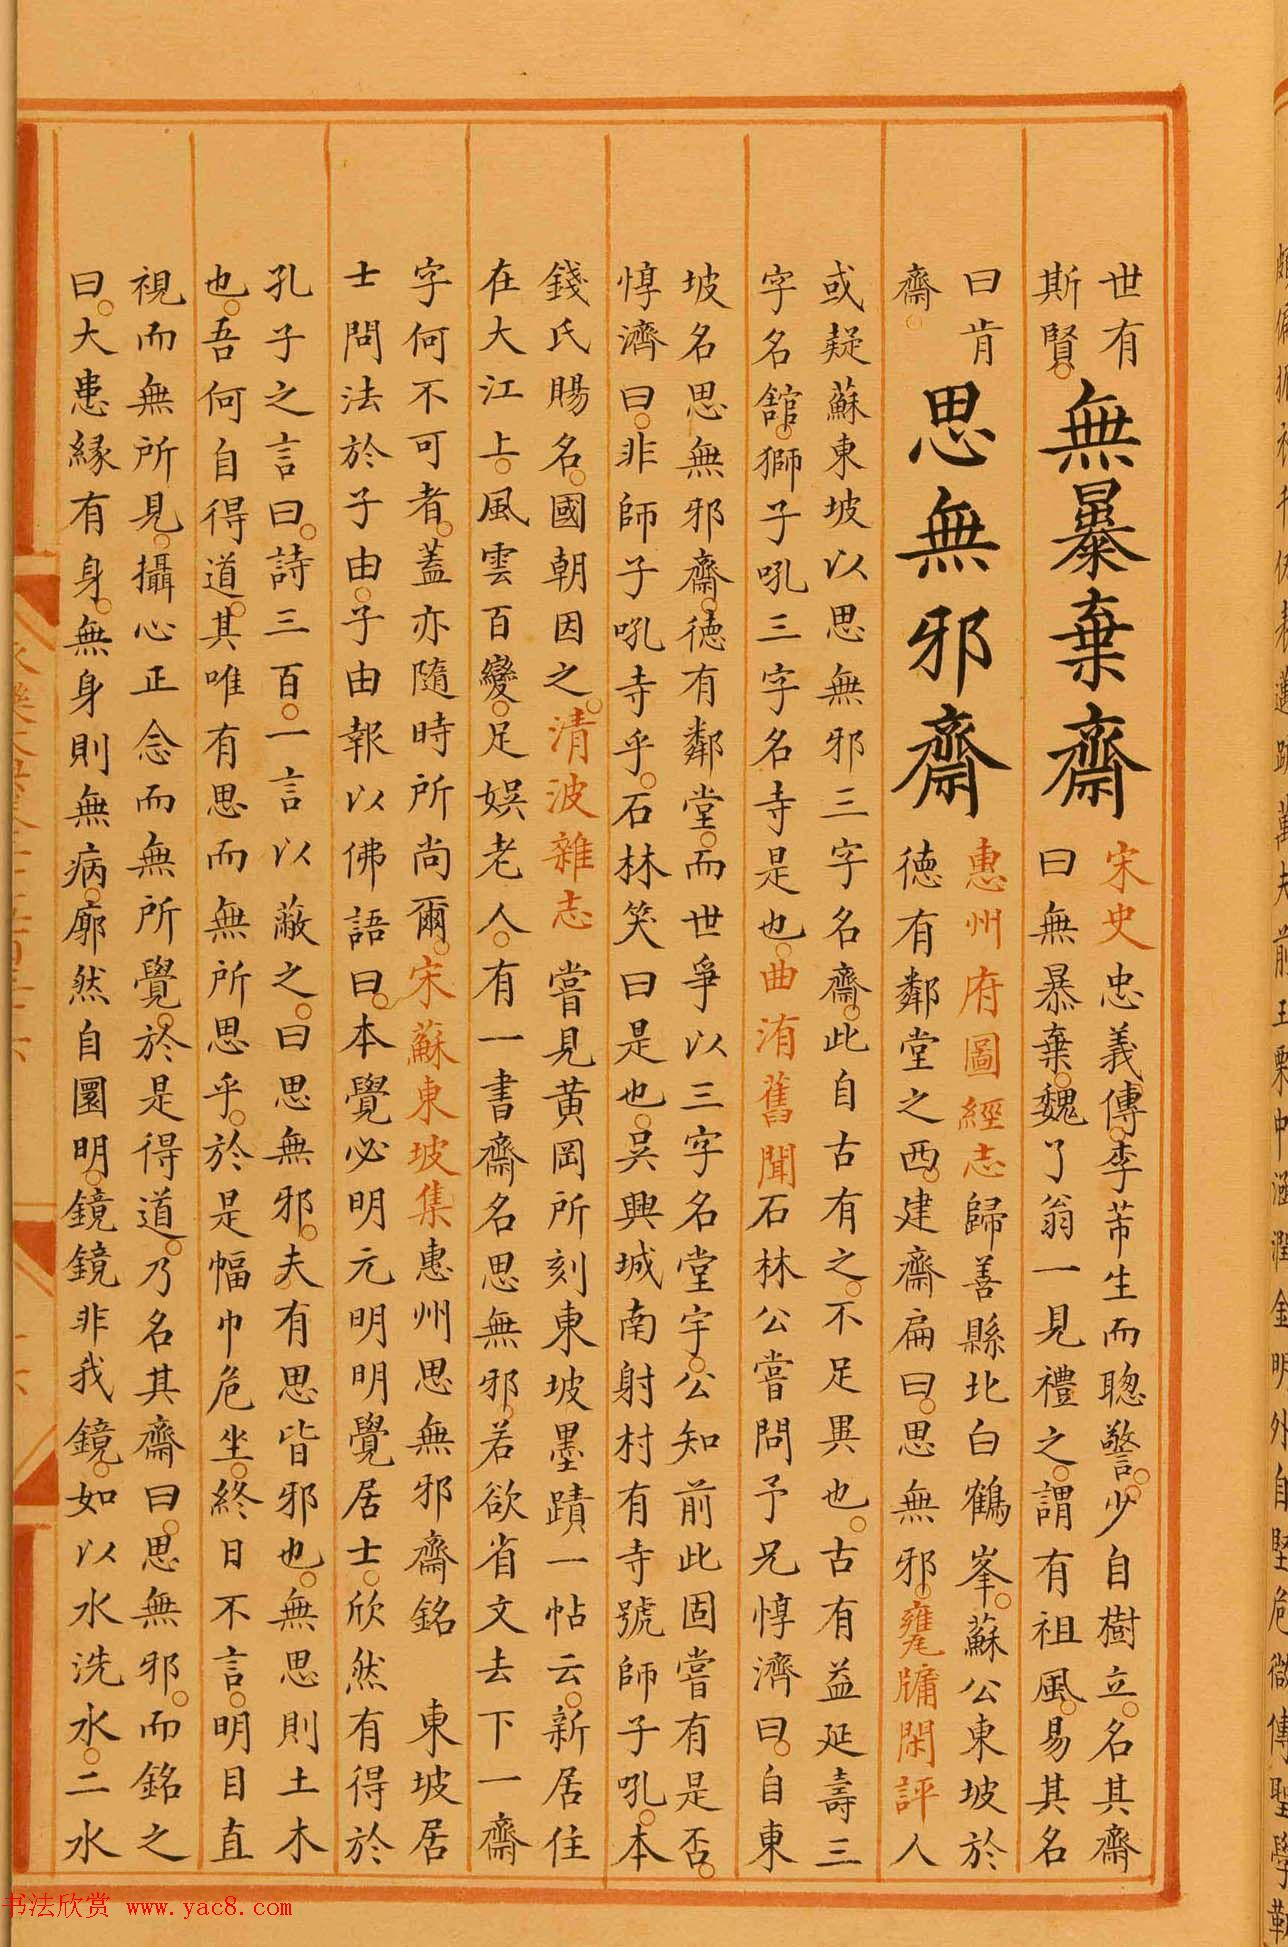 世有
斯賢。
無暴棄齋
宋史忠義傳。李芾生而聰警。少自樹立。名其齋
曰無暴棄。魏了翁一見禮之。謂有祖風。易其名
曰肯
齋。
思無邪齋
惠州府圖經志歸善縣北白鶴峯。蘇公東坡於
德有鄰堂之西。建齋扁曰。思無邪。甕牖閑評人
或疑蘇東坡以思無邪三字名齋。此自古有之。不足異也。古有益延壽三
字名舘。獅子吼三字名寺是也。曲洧舊聞石林公嘗問予兄惇濟曰。自東
坡名思無邪齋。德有鄰堂。而世爭以三字名堂宇。公知前此固嘗有是否。
惇濟曰。非師子吼寺乎。石林笑曰是也。吳興城南射村有寺號師子吼。本
錢氏賜名。國朝因之。清波雜志 嘗見黃岡所刻東坡墨蹟一帖云。新居住
在大江上。風雲百變。足娛老人。有一書齋名思無邪。若欲省文去下一齋
字何不可者。蓋亦隨時所尚爾。宋蘇東坡集惠州思無邪齋銘 東坡居
士問法於子由。子由報以佛語曰。本覺必明元明明覺居士。欣然有得於
孔子之言曰。詩三百。一言以蔽之。曰思無邪。夫有思皆邪也。無思則土木
也。吾何自得道。其唯有思而無所思乎。於是幅巾危坐。終日不言。明目直
視而無所見。攝心正念而無所覺。於是得道。乃名其齋曰。思無邪。而銘之
曰。大患緣有身。無身則無病。廓然自圜明。鏡鏡非我鏡。如以水洗水。二水
书法欣赏 www.yac8.com